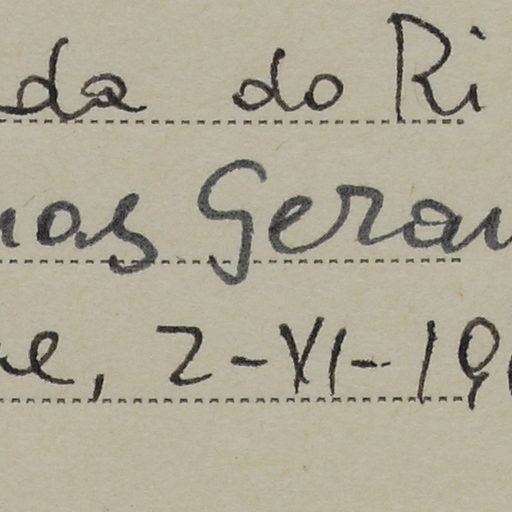 da do Ri
nas Gerai
ne, 2-VI-19